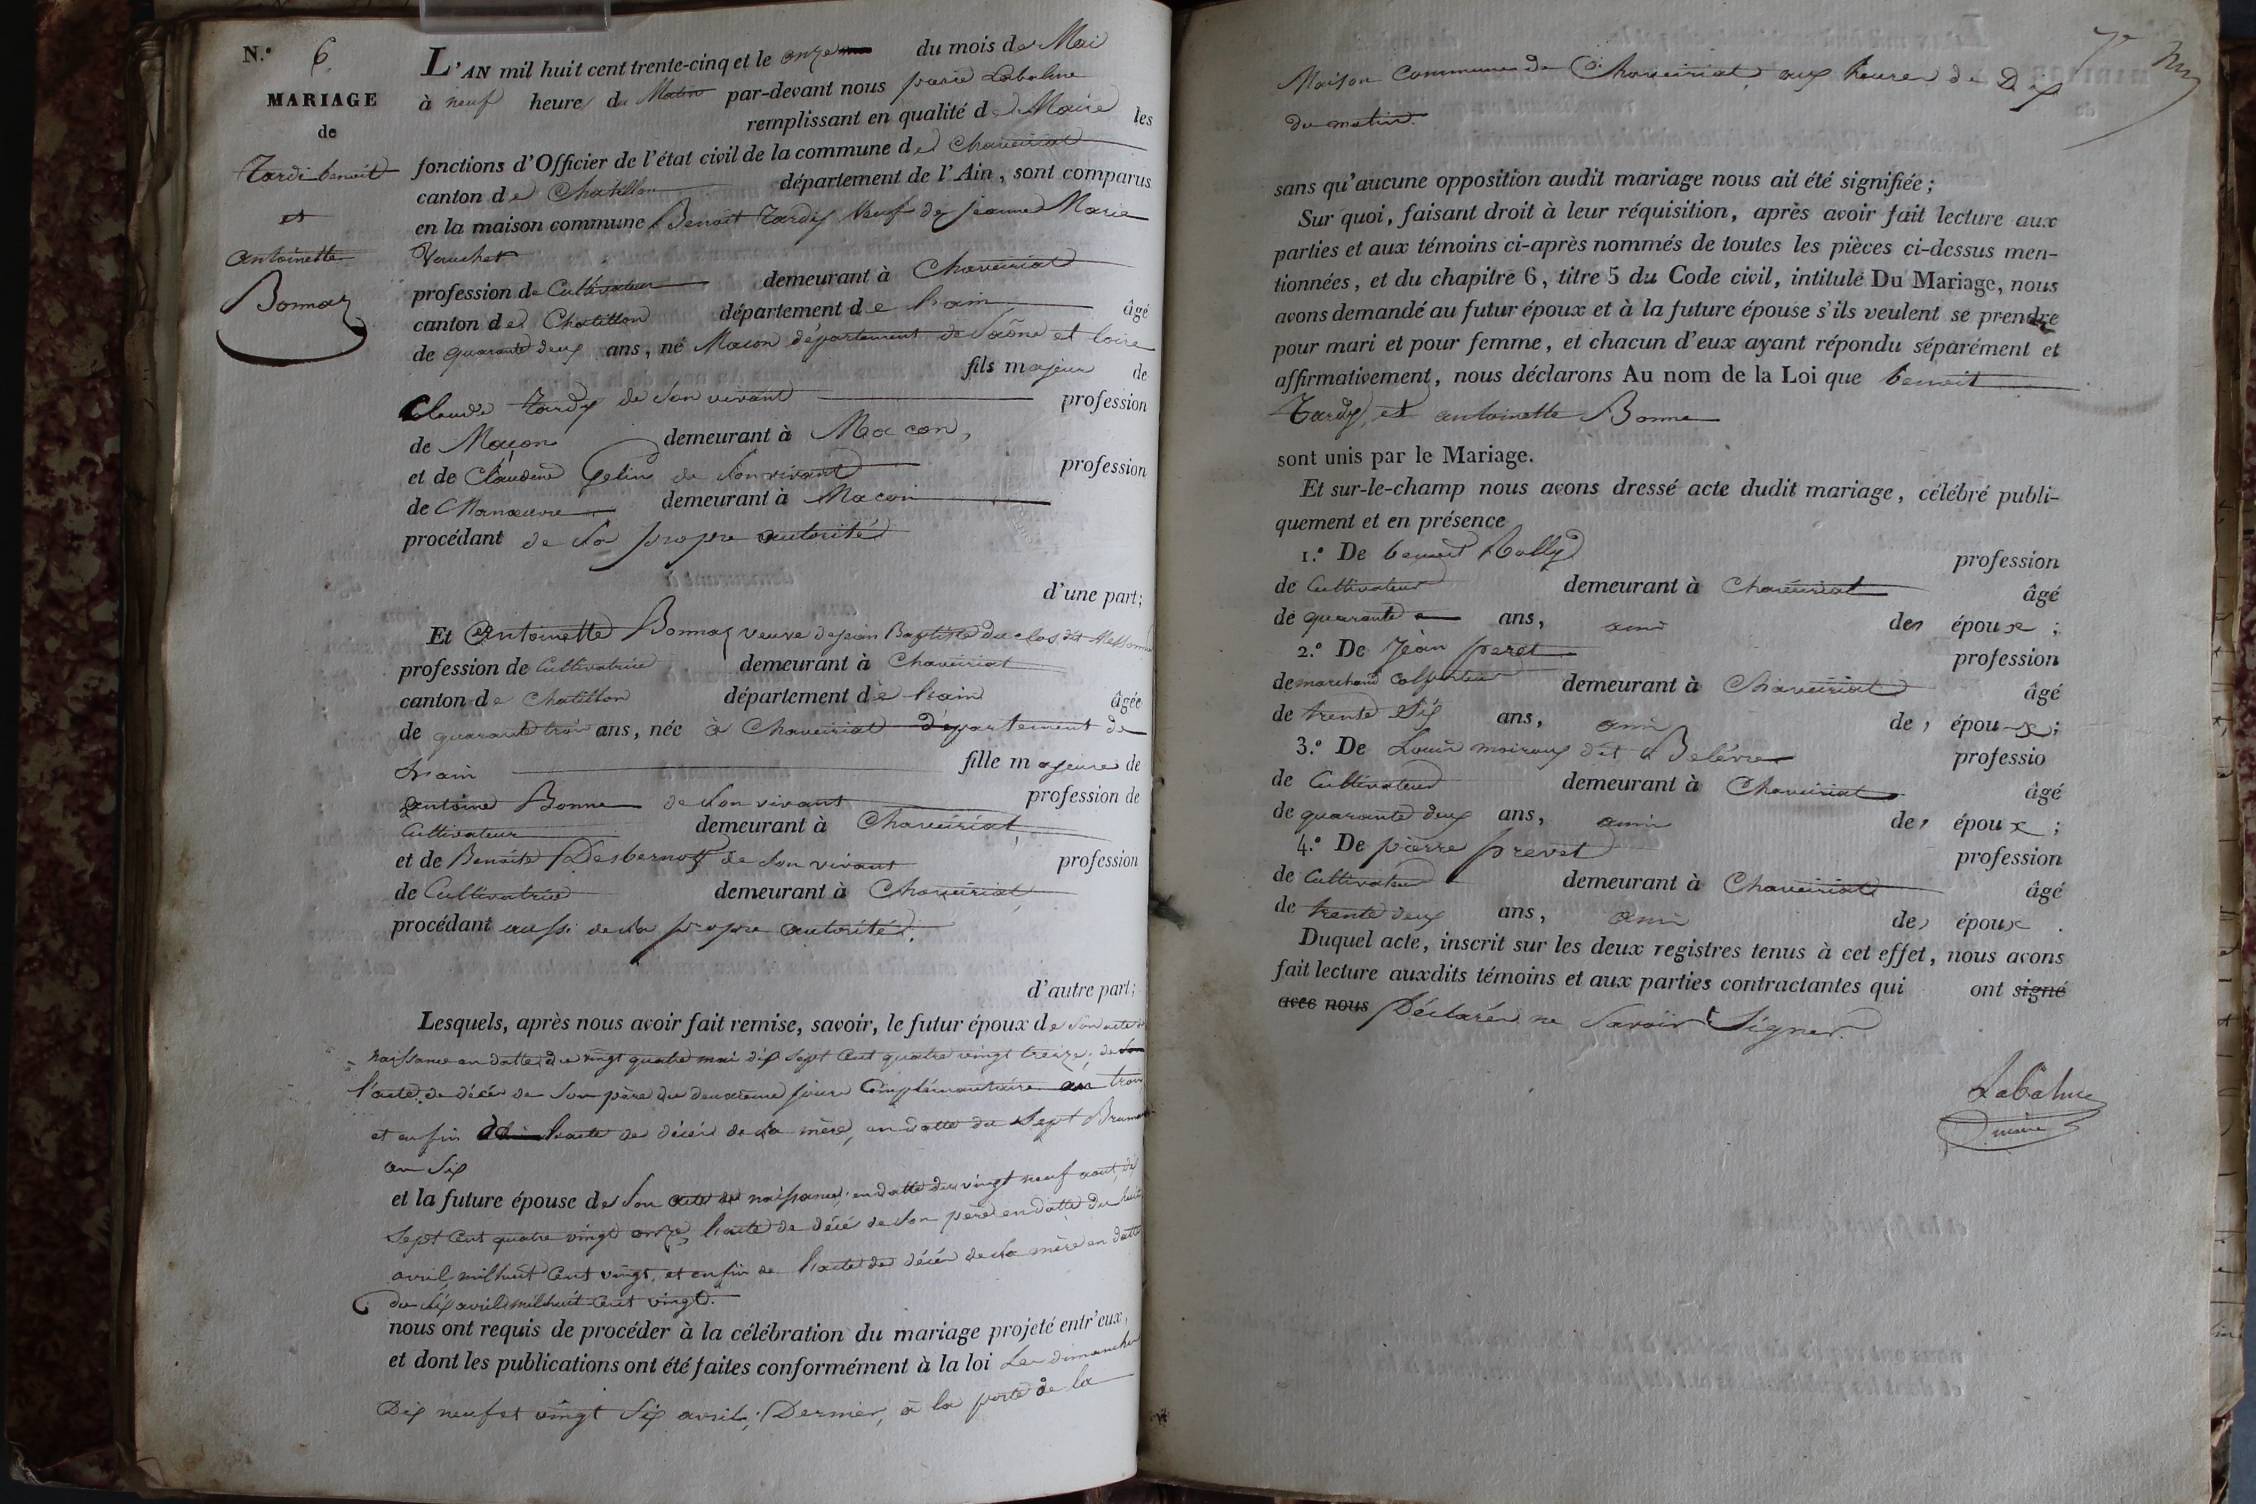 N.° 6
MARIAGE
de
Tardi benoit
et
Antoinette
Bonnaz
L'AN mil huit cent trente-cinq et le onze du mois de Mai
à neuf heure du Matin par-devant nous pierre Labalme
remplissant en qualité de Maire les
fonctions d'Officier de l'état civil de la commune de Chaveiriat
canton de Chatillon département de l'Ain, sont comparus
en la maison commune Benoit Tardy Veuf de jeanne Marie
Vauchet
profession de Cultivateur demeurant à Chaveiriat
canton de Chatillon département de Lain âgé
de quarante deux ans, né Macon département de Saône et loire
fils majeur de
Claude Tardy de Son vivant profession
de Maçon demeurant à Macon,
et de Claudine Gelin de Son vivant profession
de Manoeuvre demeurant à Macon
procédant de Sa propre autorité
d'une part;
Et Antoinette Bonnaz veuve de jean Baptiste du clos dit
profession de Cultivatrice demeurant à Chaveiriat
canton de Chatillon département de Lain âgée
de quarante trois ans, née à Chaveiriat département de
Lain fille majeure de
antoine Bonne de Son vivant profession de
Cultivateur demeurant à Chaveiriat
et de Benoite Desbernoy de Son vivant profession
de Cultivatrice demeurant à Chaveiriat
procédant aussi de Sa propre autorité.
d'autre part;
Lesquels, après nous avoir fait remise, savoir, le futur époux de Son acte de
naissance en datte du vingt quatre mai dix sept cent quatre vingt treize, de
l'acte de décès de Son père du deuxieme jour Complémentaire an trois
et enfin Lacte de décès de Sa mère, en datte du Sept Brumaire
an Six
et la future épouse de Son acte de naissance, en datte du vingt neuf aout dix
Sept Cent quatre vingt onze, Lacte de décé de Son père en datte du huit
avril milhuit Cent vingt, et enfin de Lacte de décès de Sa mère en datte
du Six avril milhuit Cent vingt.
nous ont requis de procéder à la célébration du mariage projeté entr'eux,
et dont les publications ont été faites conformément à la loi Les dimanches
Dix neuf et vingt Six avril, Dernier, à la porte de la
7e
Maison Commune de Chaveiriat, aux heures de Dix
du matin.
sans qu'aucune opposition audit mariage nous ait été signifiée;
Sur quoi, faisant droit à leur réquisition, après avoir fait lecture aux
parties et aux témoins ci-après nommés de toutes les pièces ci-dessus men-
tionnées, et du chapitre 6, titre 5 du Code civil, intitulé Du Mariage, nous
avons demandé au futur époux et à la future épouse s'ils veulent se prendre
pour mari et pour femme, et chacun d'eux ayant répondu séparément et
affirmativement, nous déclarons Au nom de la Loi que benoit
Tardy, et antoinette Bonne
sont unis par le Mariage.
Et sur-le-champ nous avons dressé acte dudit mariage, célébré publi-
quement et en présence
1.° De benoit Rolly profession
de Cultivateur demeurant à Chaveiriat âgé
de quarante ans, ami des époux;
2.° De Jean peret profession
de marchand Colporteur demeurant à Chaveiriat âgé
de trente Six ans, ami des époux;
3.° De Louis moiroux dit Belévre professio
de Cultivateur demeurant à Chaveiriat âgé
de quarante deux ans, ami des époux;
4.° De pierre prevet profession
de Cultivateur demeurant à Chaveiriat âgé
de trente deux ans, ami des époux.
Duquel acte, inscrit sur les deux registres tenus à cet effet, nous avons
fait lecture auxdits témoins et aux parties contractantes qui ont signé
avec nous Déclarés ne Savoir Signer.
Labalme
maire